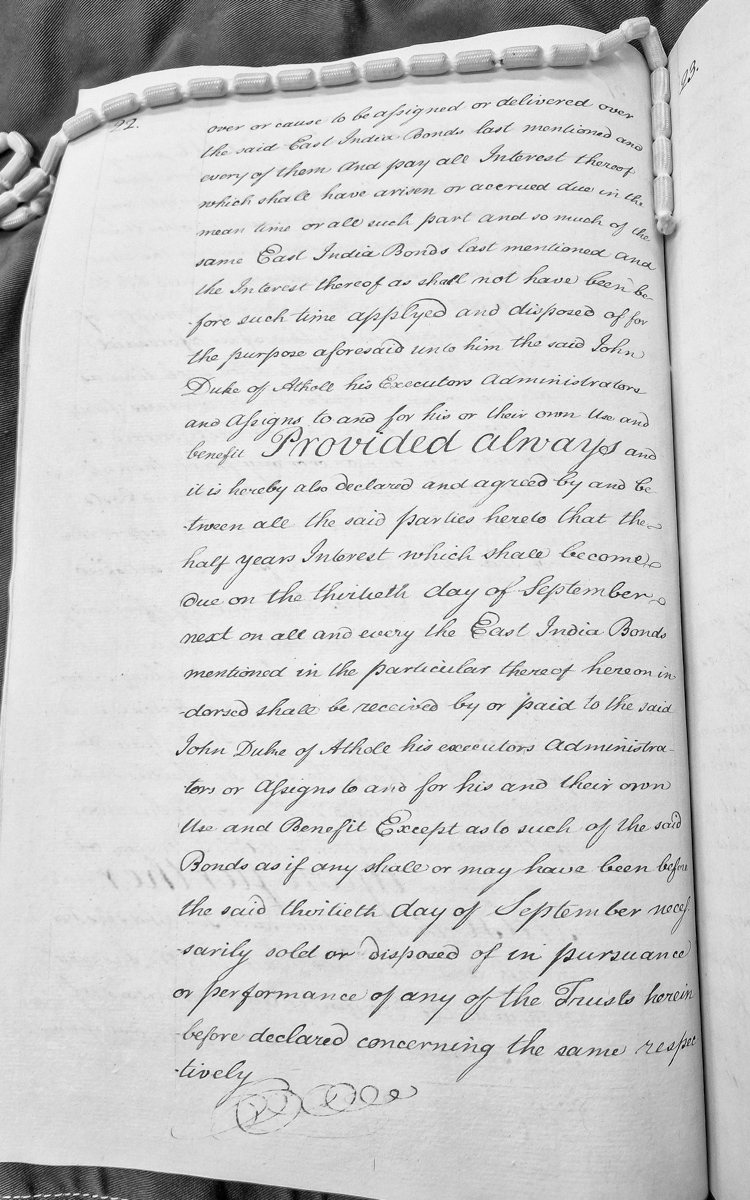 92.
93.
over or cause to be assigned or delivered over
the said East India Bonds last mentioned and
every of them And pay all Interest thereof
which shall have arisen or accrued due in the
mean time or all such part and so much of the
same East India Bonds last mentioned and
the Interest thereof as shall not have been be
-fore such time applyed and disposed of for
the purpose aforesaid unto him the said John
Duke of Atholl his Executors Administrators
and Assigns to and for his or their own Use and
benefit Provided always and
it is hereby also declared and agreed by and be
-tween all the said parties hereto that the
half years Interest which shall become
due on the thirtieth day of September
next on all and every the East India Bonds
mentioned in the particular thereof hereon in
-dorsed shall be received by or paid to the said
John Duke of Atholl his executors Administra-
tors or Assigns to and for his and their own
Use and Benefit Except as to such of the said
Bonds as if any shall or may have been before
the said thirtieth day of September neces
-sarily sold or disposed of in pursuance
or performance of any of the Trusts herein
-before declared concerning the same respec
-tively